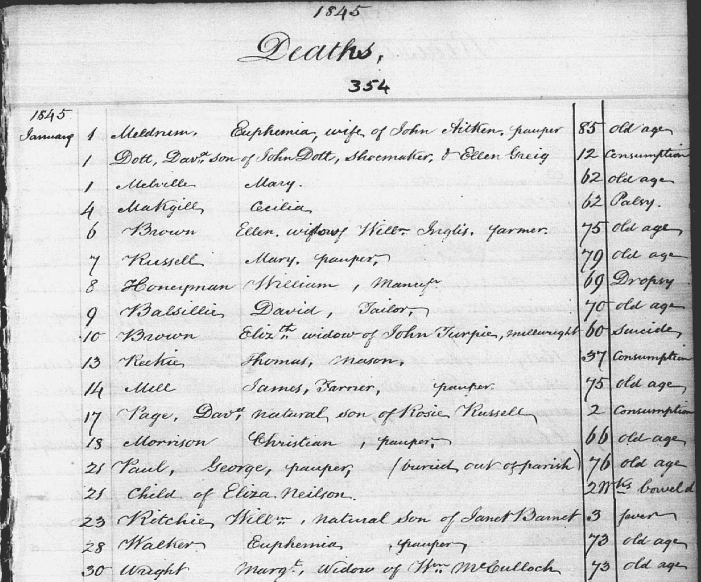 1845
Deaths,
354
1845
January 1 Meldrum, Euphemia, wife of John Aitken, pauper 85 old age
1 Dott, Davd. son of John Dott, shoemaker, & Ellen Greig 12 Consumption
1 Melville Mary. 62 old age
4 Makgill Cecilia 62 Palsy.
6 Brown Ellen, widow of Willm Inglis, farmer. 75 old age
7 Russell Mary, pauper, 79 old age
8 Honeyman William, Manufr 69 Dropsy
9 Balsillie David, Tailor, 70 old age
10 Brown Elizth widow of John Turpie, millwright 60 Suicide,
13 Thomas, Mason, 37 Consumption
14 Mill James, Farrier, pauper. 75 old age
17 Page, Davd. natural son of Rosie Russell 2 Consumption
18 Morrison Christian, pauper, 66 old age
21 Paul, George, pauper, (buried out of parish) 76 old age
21 Child of Eliza Neilson. 2 Wks bowel d
23 Ritchie Willm, natural son of Janet Barnet 3 fever
28 Walker Euphemia, pauper, 73 old age
30 Wright Margt, widow of Wm McCulloch 73 old age